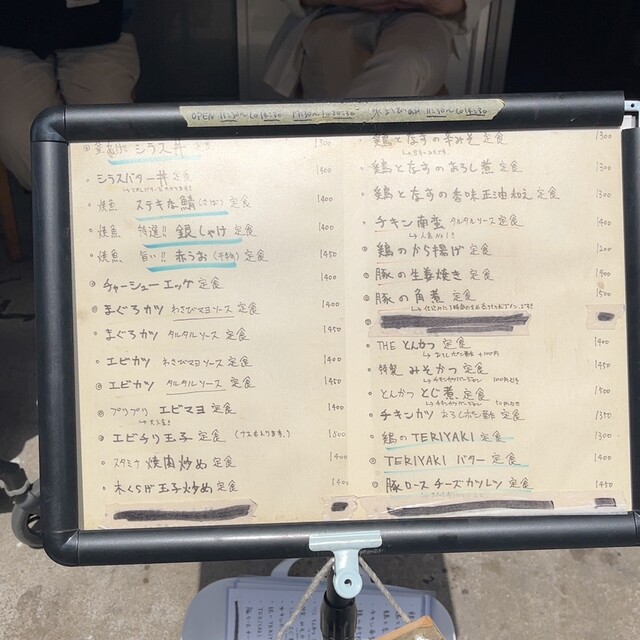 OPEN
シラス丼 定食 1300
シラスバター丼 定食 1400
焼魚 ステキな鯖(さば) 定食 1400
焼魚 特選!! 銀しゃけ 定食 1400
焼魚 旨い!! 赤うお(干物) 定食 1450
チャーシューエッグ 定食 1400
まぐろカツ わさびマヨソース 定食 1400
まぐろカツ タルタルソース 定食 1450
エビカツ わさびマヨソース 定食 1400
エビカツ タルタルソース 定食 1450
プリプリ エビマヨ 定食 1400
エビチリ玉子 定食 1500
スタミナ 焼肉炒め 定食 1400
木くらげ玉子炒め 定食 1400
鶏となすの辛みそ 定食 1300
鶏となすのおろし煮 定食 1300
鶏となすの香味正油和え 定食 1300
チキン南蛮 タルタルソース 定食 1400
↳人気No1!
鶏のから揚げ 定食 1200
豚の生姜焼き 定食 1400
豚の角煮 定食 1500
THE とんかつ 定食 1400
↳おろしポン酢 +100円
特製 みそかつ 定食 1450
とんかつ とじ煮 定食 1500
チキンカツ おろしポン酢 定食 1350
鶏のTERIYAKI 定食 1300
TERIYAKI バター 定食 1400
豚ロース チーズカツレツ 定食 1450